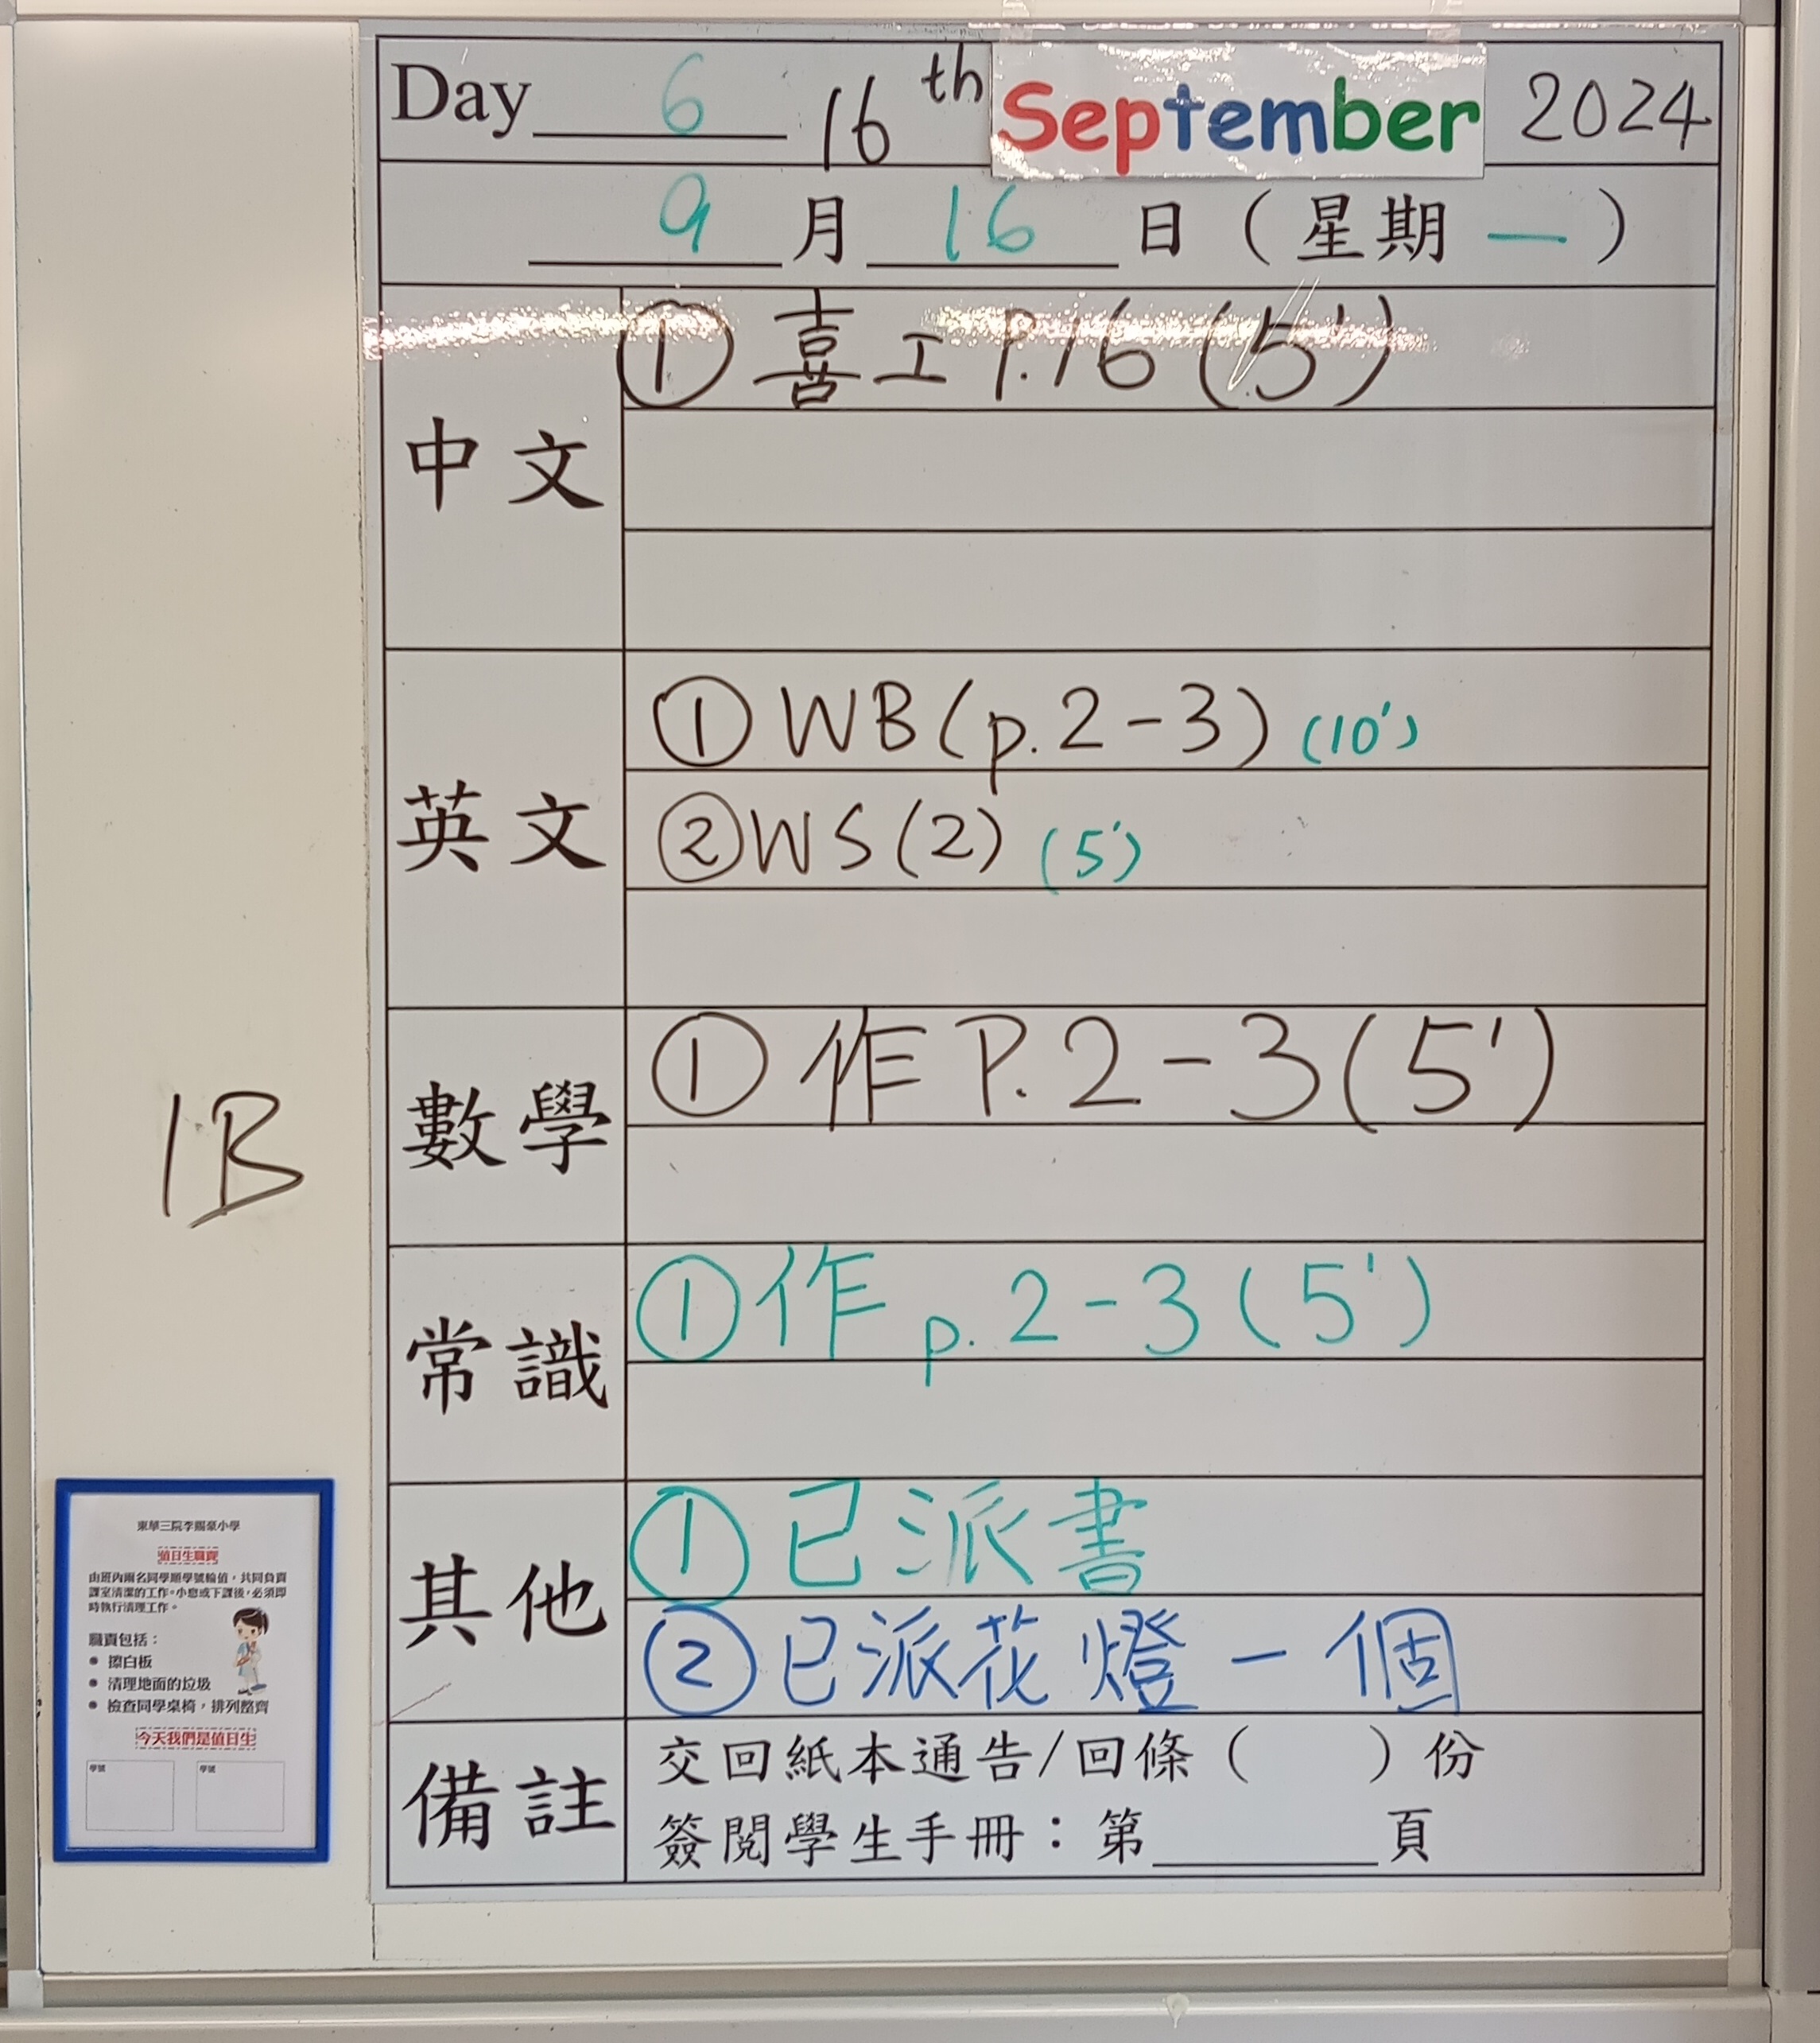 Day 6 16th September 2024
9 月 16 日 ( 星期 一 )
中文
① 喜工 P.16 (5')
英文
① WB (p.2-3) (10')
② WS (2) (5')
數學
① 作 P.2-3 (5')
常識
① 作 p.2-3 (5')
其他
① 已派書
② 已派花燈一個
備註
交回紙本通告/回條 ( ) 份
簽閱學生手冊：第 頁
1B
東華三院李賜豪小學
值日生職責
由班內兩名同學順學號輪值，共同負責
課室清潔的工作。小息或下課後，必須即
時執行清理工作。
職責包括：
● 擦白板
● 清理地面的垃圾
● 檢查同學桌椅，排列整齊
今天我們是值日生
學號 學號